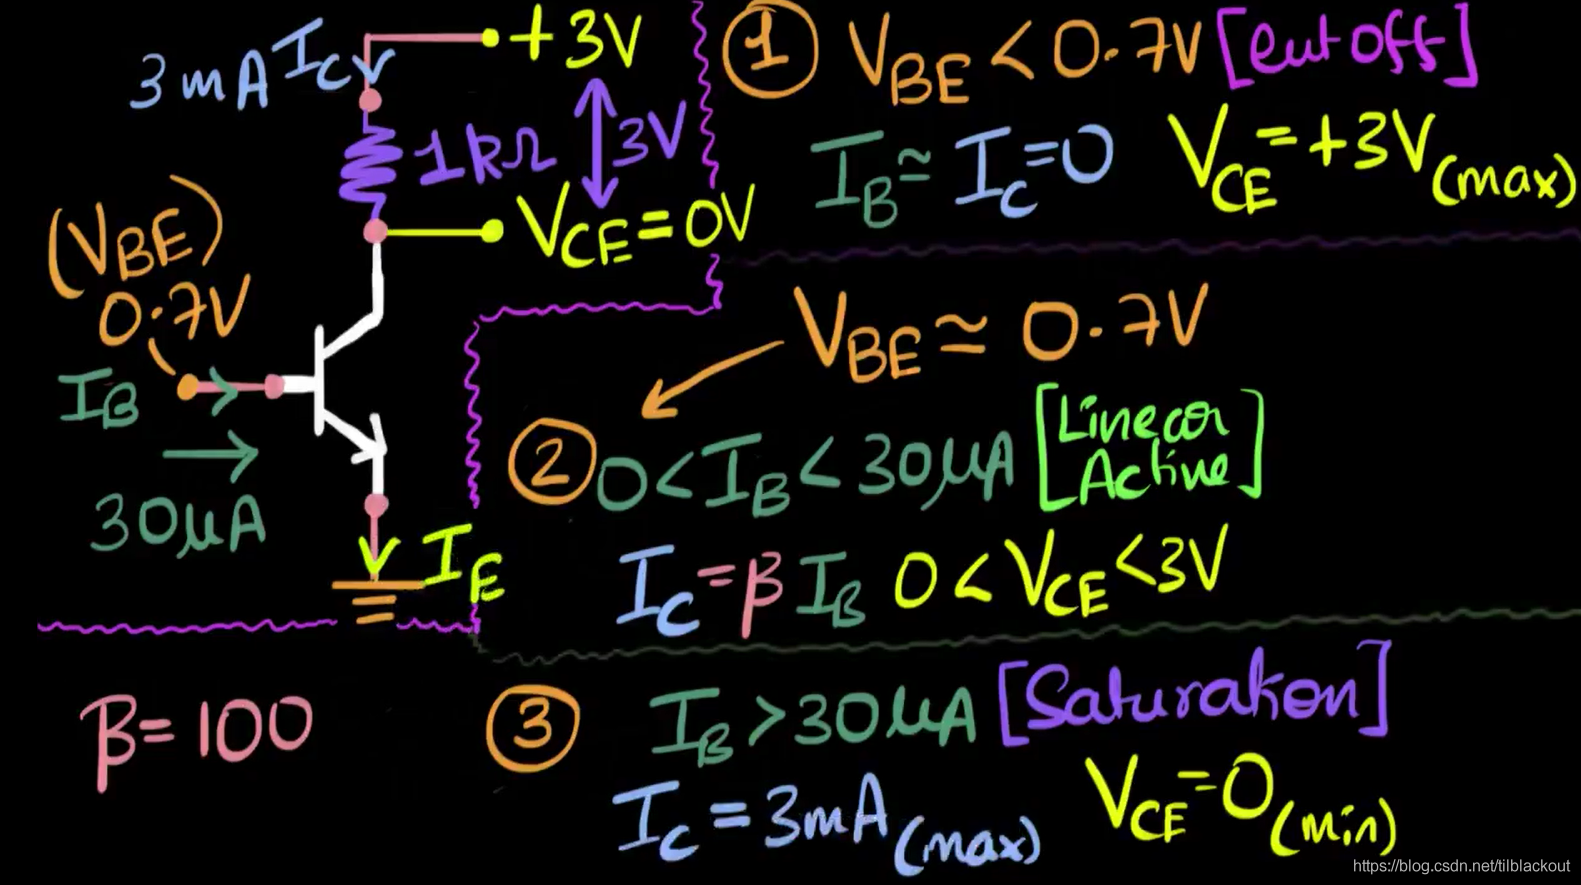 3mA I_C
+3V
1kΩ
3V
V_CE=0V
(V_BE)
0.7V
I_B
30μA
I_E
β=100
① V_BE<0.7V [cut off]
I_B≃I_C=0 V_CE=+3V(max)
V_BE≃0.7V
② 0<I_B<30μA [Linear Active]
I_C=βI_B 0<V_CE<3V
③ I_B>30μA [Saturation]
I_C=3mA(max) V_CE=0(min)
https://blog.csdn.net/tilblackout